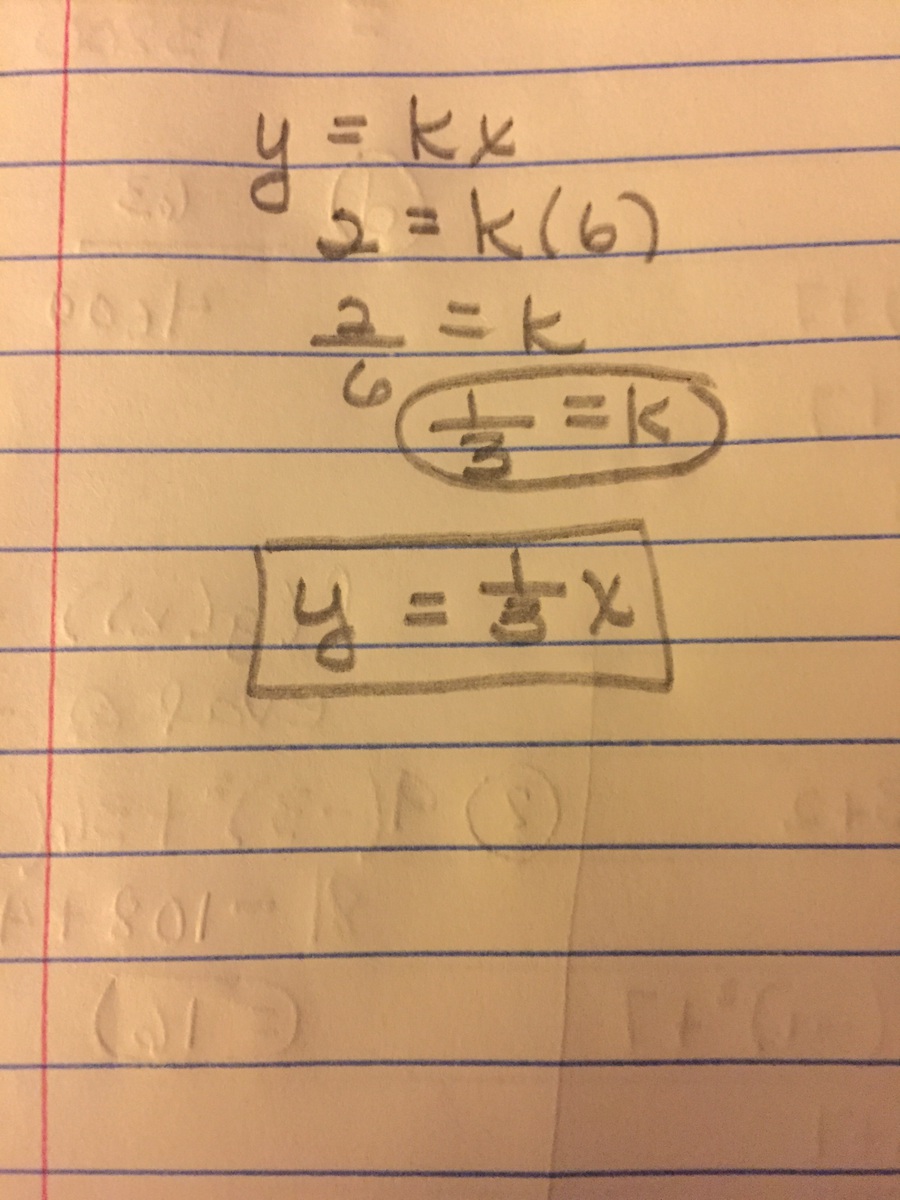 y = kx
2 = k(6)
2/6 = k
1/3 = k
y = 1/3 x